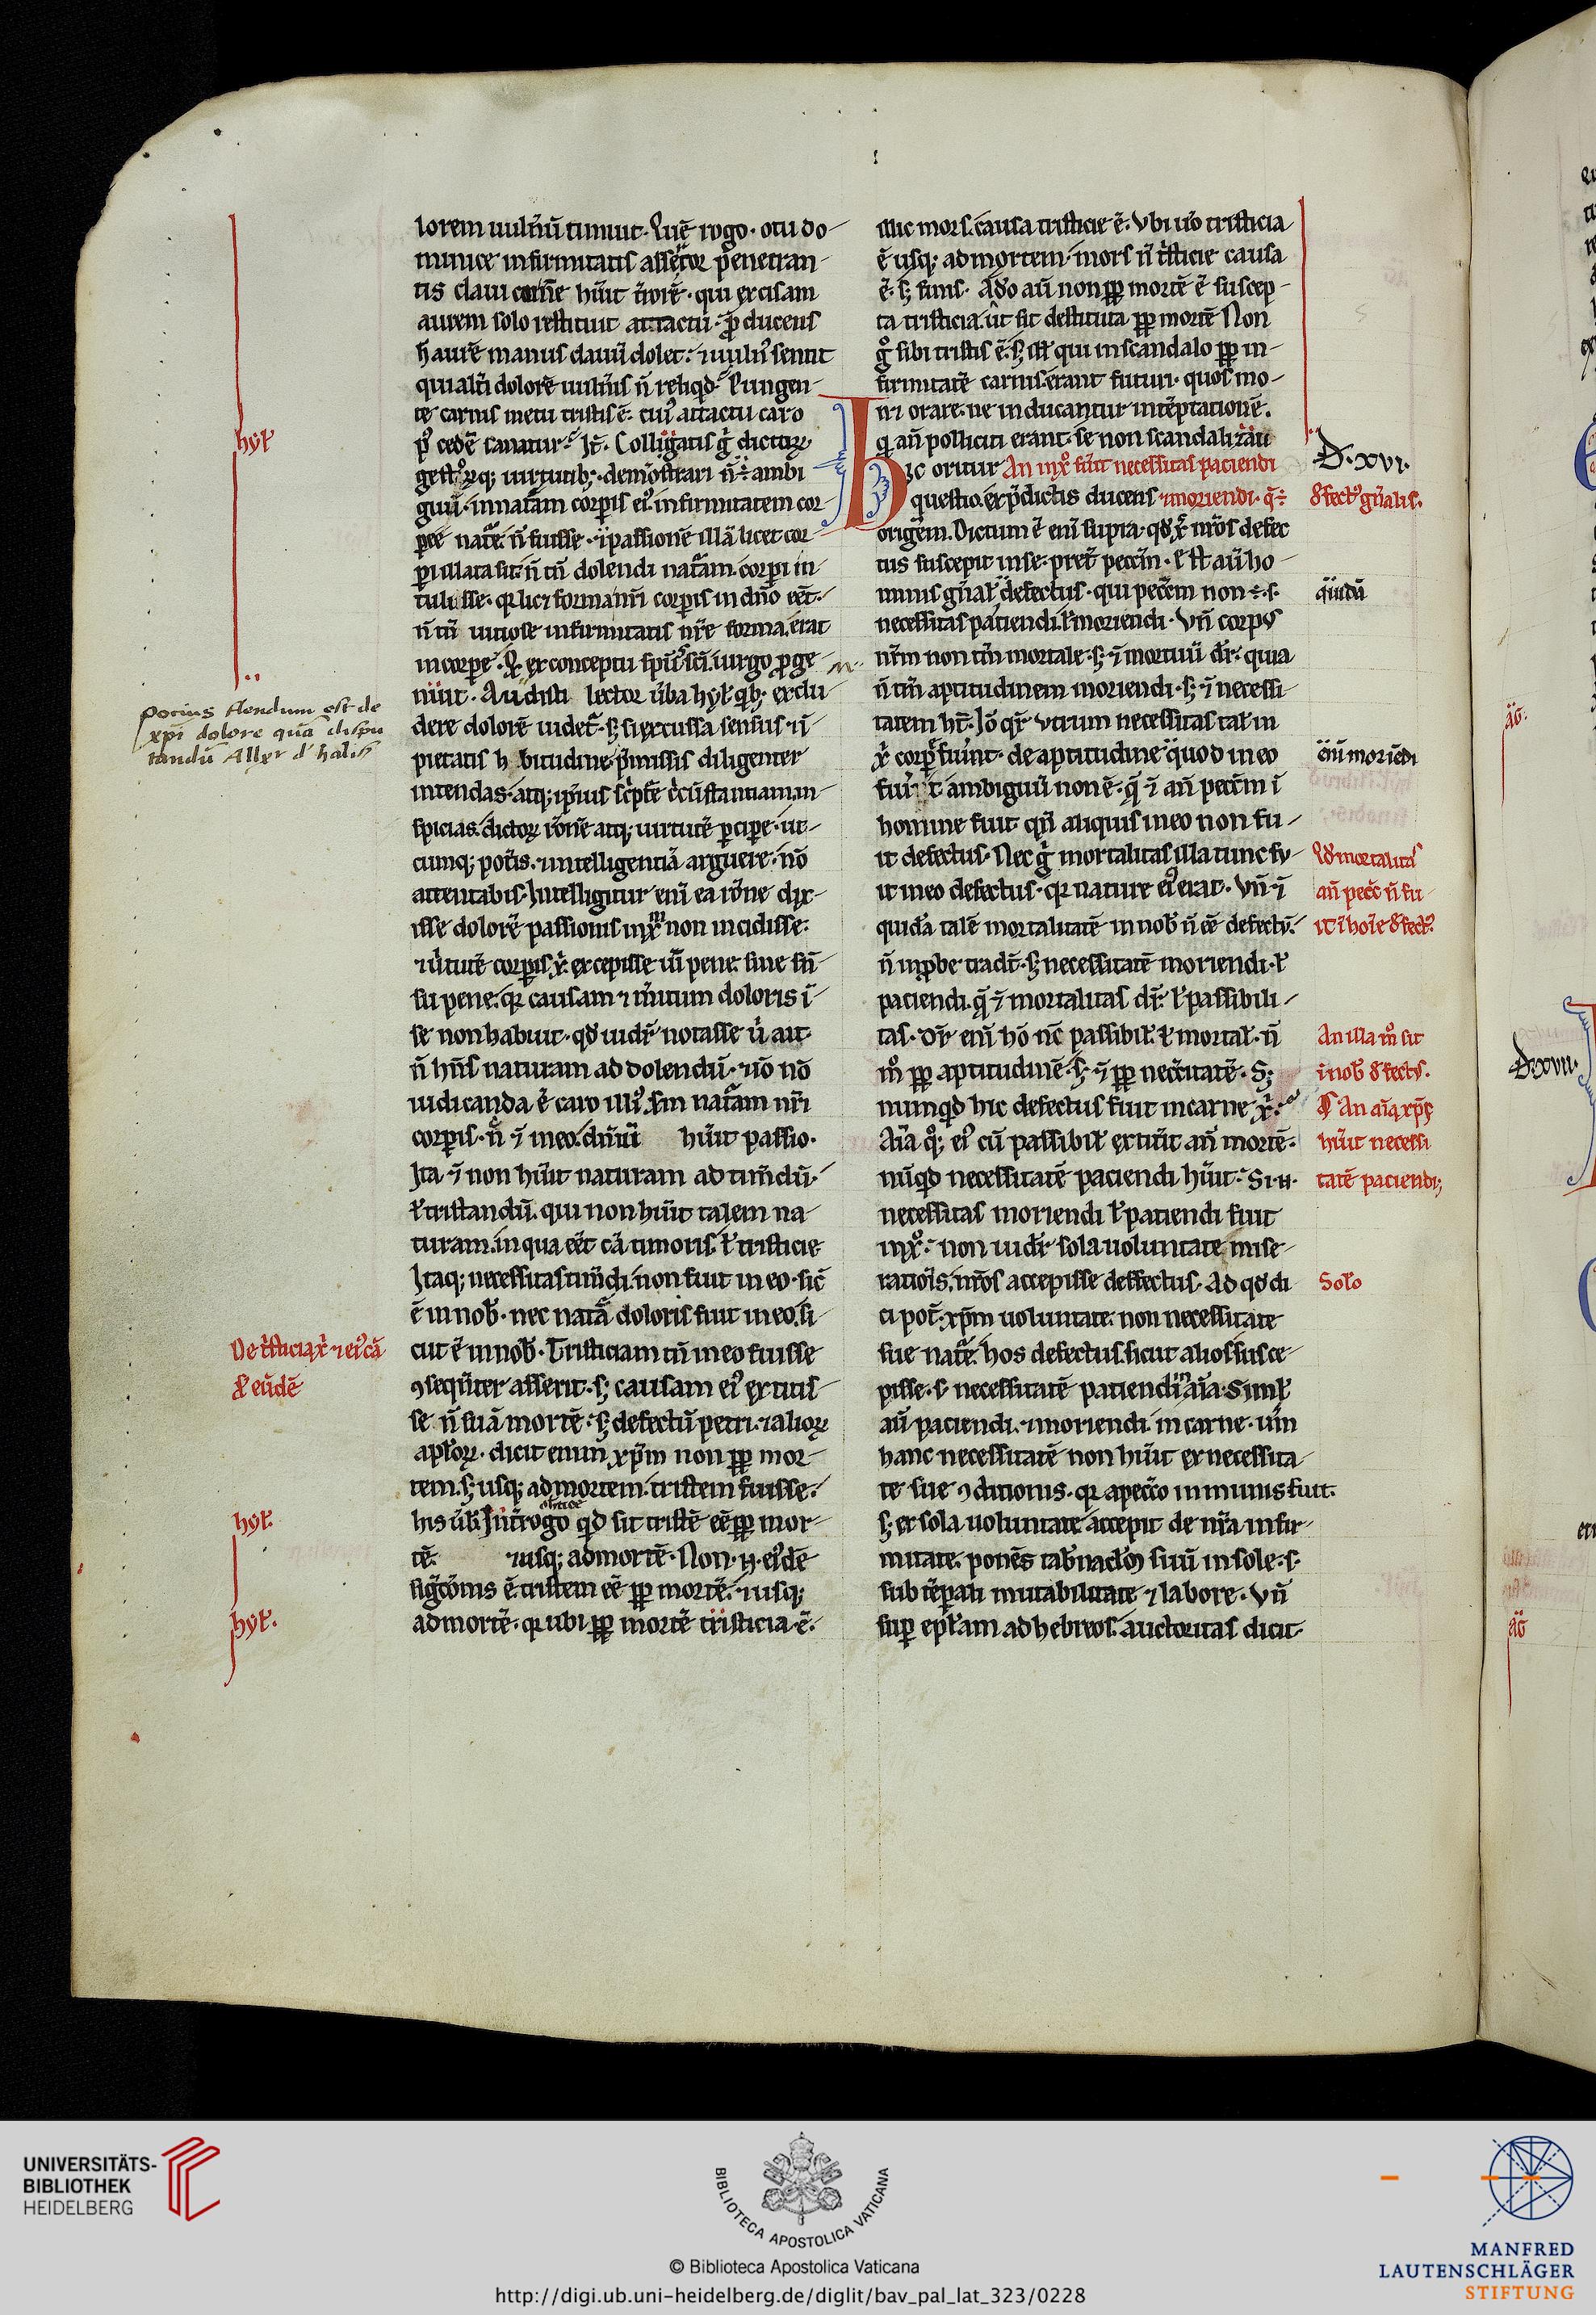 lorem uuln̄ū timuit. Quē rogo. o tu do-
minice infirmitatis assertor p̄enetran-
tis claui carnē hūit t̄rorē. qui excisam
aurem solo restituit attactu. p̄ducens
h̄ aurē manus clauū dolet. ⁊ uuln' sentit
qui alt̄i dolorē uuln̄is n̄ reliq̄d. Pungen-
te carnis metu tristis ē. cui' attactu caro
p' cedē sanatur. Jt̄. Colligatis ḡ dictoꝝ
gestoꝝq; uirtutib; demōstrari n̄ ÷ ambi
guū. in nat̄am corp̄is ei' infirmitatem cor
p̄ee nat̄e n̄ fuisse. ⁊ i passionē illā licet cor-
p̄i illata sit. n̄ tn̄ dolendi nat̄am corp̄i in-
tulisse. q̄ licꝫ forma nr̄i corp̄is in dn̄o eēt.
n̄ tn̄ uitiose infirmitatis nr̄e forma erat
in corpe. Q̄ ex conceptu sp̄ū sc̄i uirgo p̄ge
nuit. Audisti lector ūba hyl̄. q̄b; exclu-
dere dolorē uidet̄. sꝫ si excussa sensus ⁊ i-
pietatis h bitudine p̄missis diligenter
intendas. atq; ip̄ius sc̄pt̄e c̄cūstantiam in-
spicias. dictoꝝ rōnē atq; uirtutē p̄cipe. ut-
cumq; pot̄is. ⁊ intelligentiā arguere. nō
attentabis. Intelligitur enī ea rōne dix-
isse dolorē passionis in xm̄ non incidisse.
⁊ ūtutē corp̄is x̄ excepisse uī pene. sine sn̄-
su pene. q̄ causam ⁊ m̄itum doloris ī
se non habuit. qd̄ uidr̄ notasse ū ait
n̄ hn̄s naturam ad dolendū. ⁊ iō nō
iudicanda ē caro illi' sm̄ nat̄am nr̄i
corp̄is. n̄ ⁊̄ in eo dn̄iū hūit passio.
Ita ⁊̄ non hūit naturam ad tim̄dū.
ł tristandū. qui non hūit talem na-
turam. in qua eēt cā timoris ł tristicie
Itaq; necessitas tim̄di non fuit in eo. sic̄
ē in nob̄. nec nat̄a doloris fuit in eo. si
cut ē in nob̄. Tristiciam tn̄ in eo fuisse
9seq̄nter asserit. sꝫ causam ei' extitis-
se n̄ suā mortē. sꝫ defectū petri. ⁊ alioꝝ
apl̄oꝝ. dicit enim xp̄m non pp̄ mor-
tem. sꝫ usq; ad mortem tristem fuisse.
his ūb̄. Int̄rogo q̄d sit tristē eē pp̄ mor-
tē. ⁊ usq; ad mortē. Non. n. ei'dē
sig̅c̄onis ē tristem eē pp̄ mortē. ⁊ usq;
ad mortē. q̄ ubi pp̄ mortē tristicia ē.
hyl̄
Pocius flendum est de
xpi dolore quā dispu
tandū Allxr d' halis
De tristicia x̄ ⁊ ei' cā
ex eū̄dē
hyl̄.
hyl̄.
illic mors causa tristicie ē. Vbi uō tristicia
ē usq; ad mortem. mors n̄ t̄sticie causa
ē. sꝫ finis. Adō aū non pp̄ mortē ē suscep-
ta tristicia. ūt sit destituta pp̄ mortē. Non
ḡ sibi tristis ē. sꝫ ill̄ qui in scandalo pp̄ in-
firmitatē carnis erant futuri. quos mo-
n; orare ne inducantur in tēptationē.
q̄ aū polliciti erant. se non scandalizāū
Hic oritur An in xo fūit necessitas paciendi
questio. ex p̄dictis ducens ⁊ moriendi. q̄ ÷
origēm. Dictum ē enī supra. qd̄ x̄ nr̄os defec
tus suscepit in se. pret̄ peccm̄. Est aū ho-
minis gn̄al̄ defectus. qui pecc̄m non ÷. s.
necessitas patiendi. ł moriendi. Vn̄ corp9
nr̄m non tm̄ mortale. sꝫ ⁊̄ mortuū dr̄. quia
n̄ tm̄ aptitudinem moriendi. sꝫ ⁊̄ necessi-
tatem ht̄. Jō qr̄ vtrum necessitas tal̄ in
x̄ corp̄e fuint. de aptitudine quod in eo
fuit ambiguū non ē. q̄ ⁊̄ an̄ pecc̄m ī
homine fuit qn̄ aliquis in eo non fu-
it defectus. Nec ḡ mortalitas illa tunc fu-
it in eo defectus. q̄ nature ei' erat. Vn̄ ⁊̄
quidā talē mortalitatē in nob̄ n̄ eē defectū.
n̄ inp̄be tradt̄. sꝫ necessitatē moriendi. ł
paciendi. q̄ ⁊̄ mortalitas dr̄ ł passibili-
tas. Dr̄ enī hō nc̄ passibil̄ ł mortal̄. n̄
m° pp̄ aptitudinē. sꝫ ⁊̄ pp̄ nec̄citatē. Sꝫ
numqd̄ hic defectus fuit in carne x̄.
Aīa q°q; ei' cū passibil̄ extitit an̄ mortē.
nūqd̄ necessitatē paciendi hūit. Si. n.
necessitas moriendi ł patiendi fuit
in x°. non uidr̄ sola uoluntate mise-
ratiōis. nr̄os accepisse deffectus. Ad qd̄ di
ci pot̄. xp̄m uoluntate. non necessitate
sue nat̄e. hos defectus. sicut alios susce-
pisse. s. necessitatē patiendi in aīa. Simil̄
aū paciendi. ⁊ moriendi. in carne. uīn
hanc necessitatē non hūit ex necessita-
te sue 9ditionis. q̄ a pecc̄o inmunis fuit.
sꝫ ex sola uoluntate accepit de nr̄a infir-
mitate. ponēs tab̄nacl̄m suū in sole. s.
sub tēp̄ali mutabilitate ⁊ labore. Vn̄
sup̄ epl̄am ad hebreos. auctoritas dicit.
D. xvi.
d'fect' gn̄alis.
quidā
eiū moriēdi
Qd̄ mortalitas
an̄ pecc̄ n̄ fu-
it ī hoīe d'fect'.
An illa m° sit
in nob̄ d'fect9.
¶ An aīa xp̄i
hūit necessi
tatē paciendi;
Sol̄o
D. xvii.
UNIVERSITÄTS-
BIBLIOTHEK
HEIDELBERG
BIBLIOTECA APOSTOLICA VATICANA
© Biblioteca Apostolica Vaticana
http://digi.ub.uni-heidelberg.de/diglit/bav_pal_lat_323/0228
MANFRED
LAUTENSCHLÄGER
STIFTUNG